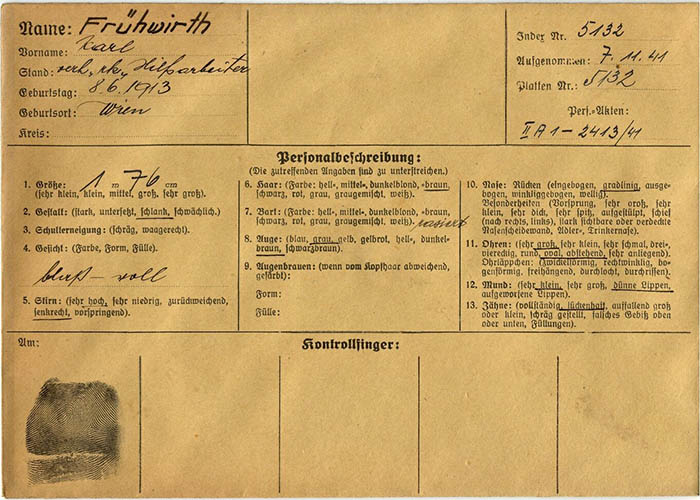 Name: Frühwirth
Vorname: Karl
Stand: verh., rk., Hilfsarbeiter
Geburtstag: 8.6.1913
Geburtsort: Wien
Kreis:
Index Nr. 5132
Aufgenommen: 7.11.41
Platten Nr.: 5132
Pers.-Akten:
II A 1 - 2413/41
Personalbeschreibung:
(Die zutreffenden Angaben sind zu unterstreichen.)
1. Größe: 1 m 76 cm
(sehr klein, klein, mittel, groß, sehr groß).
2. Gestalt: (stark, untersetzt, schlank, schwächlich).
3. Schulterneigung: (schräg, waagerecht).
4. Gesicht: (Farbe, Form, Fülle).
blaß - voll
5. Stirn: (sehr hoch, sehr niedrig, zurückweichend,
senkrecht, vorspringend).
6. Haar: (Farbe: hell-, mittel-, dunkelblond, -braun,
schwarz, rot, grau, graugemischt, weiß).
7. Bart: (Farbe: hell-, mittel-, dunkelblond, -braun,
schwarz, rot, grau, graugemischt, weiß). rasiert
8. Auge: (blau, grau, gelb, gelbrot, hell-, dunkel-
braun, schwarzbraun).
9. Augenbrauen: (wenn vom Kopfhaar abweichend,
gefärbt):
Form:
Fülle:
10. Nase: Rücken (eingebogen, gradlinig, ausge-
bogen, winkliggebogen, wellig).
Besonderheiten (Vorsprung, sehr groß, sehr
klein, sehr dick, sehr spitz, aufgestülpt, schief
(nach rechts, links), stark sichtbare oder verdeckte
Nasenscheidewand, Adler-, Trinkernase).
11. Ohren: (sehr groß, sehr klein, sehr schmal, drei-,
viereckig, rund, oval, abstehend, sehr anliegend).
Ohrläppchen: (zwickelförmig, rechtwinklig, bo-
genförmig, freihängend, durchlocht, durchrissen).
12. Mund: (sehr klein, sehr groß, dünne Lippen,
aufgeworfene Lippen).
13. Zähne: (vollständig, lückenhaft, auffallend groß
oder klein, schräg gestellt, falsches Gebiß oben
oder unten, Füllungen).
Am:
Kontrollfinger: